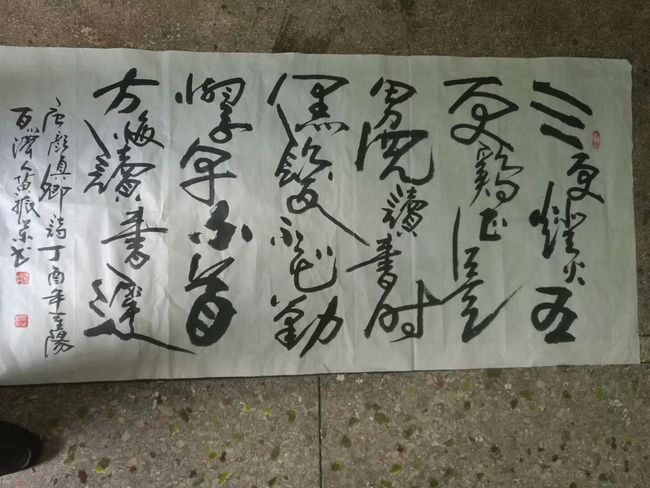 三更燈火五
更鷄正是
男兒讀書时
黑髮不知勤
學早白首
方悔讀書遲
唐顏真卿詩丁酉年陽
百濟振书